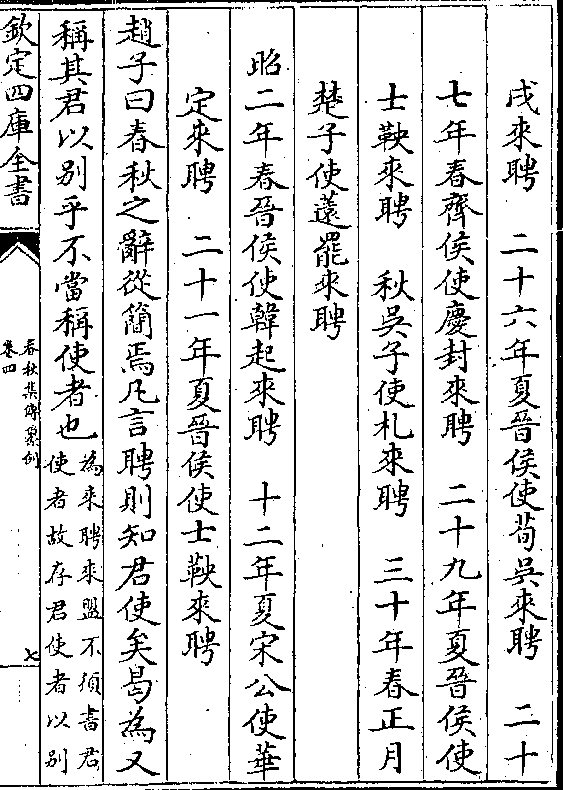 戌來聘　二十六年夏晉侯使荀吳來聘　二十
七年春齊侯使慶封來聘　二十九年夏晉侯使
士鞅來聘　秋吳子使札來聘　三十年春正月
楚子使薳罷來聘
昭二年春晉侯使韓起來聘　十二年夏宋公使華
定來聘　二十一年夏晉侯使士鞅來聘
趙子曰春秋之辭從簡焉凡言聘則知君使矣曷為又
稱其君以別乎不當稱使者也為來聘來盟不須書君
使者故存君使者以別
欽定四庫全書
春秋集傳纂例
卷四
七